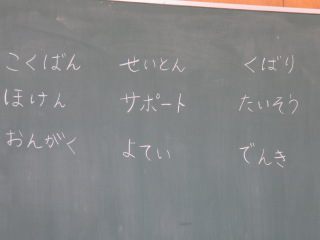 こくばん せいとん くばり
ほけん サポート たいそう
おんがく よてい でんき